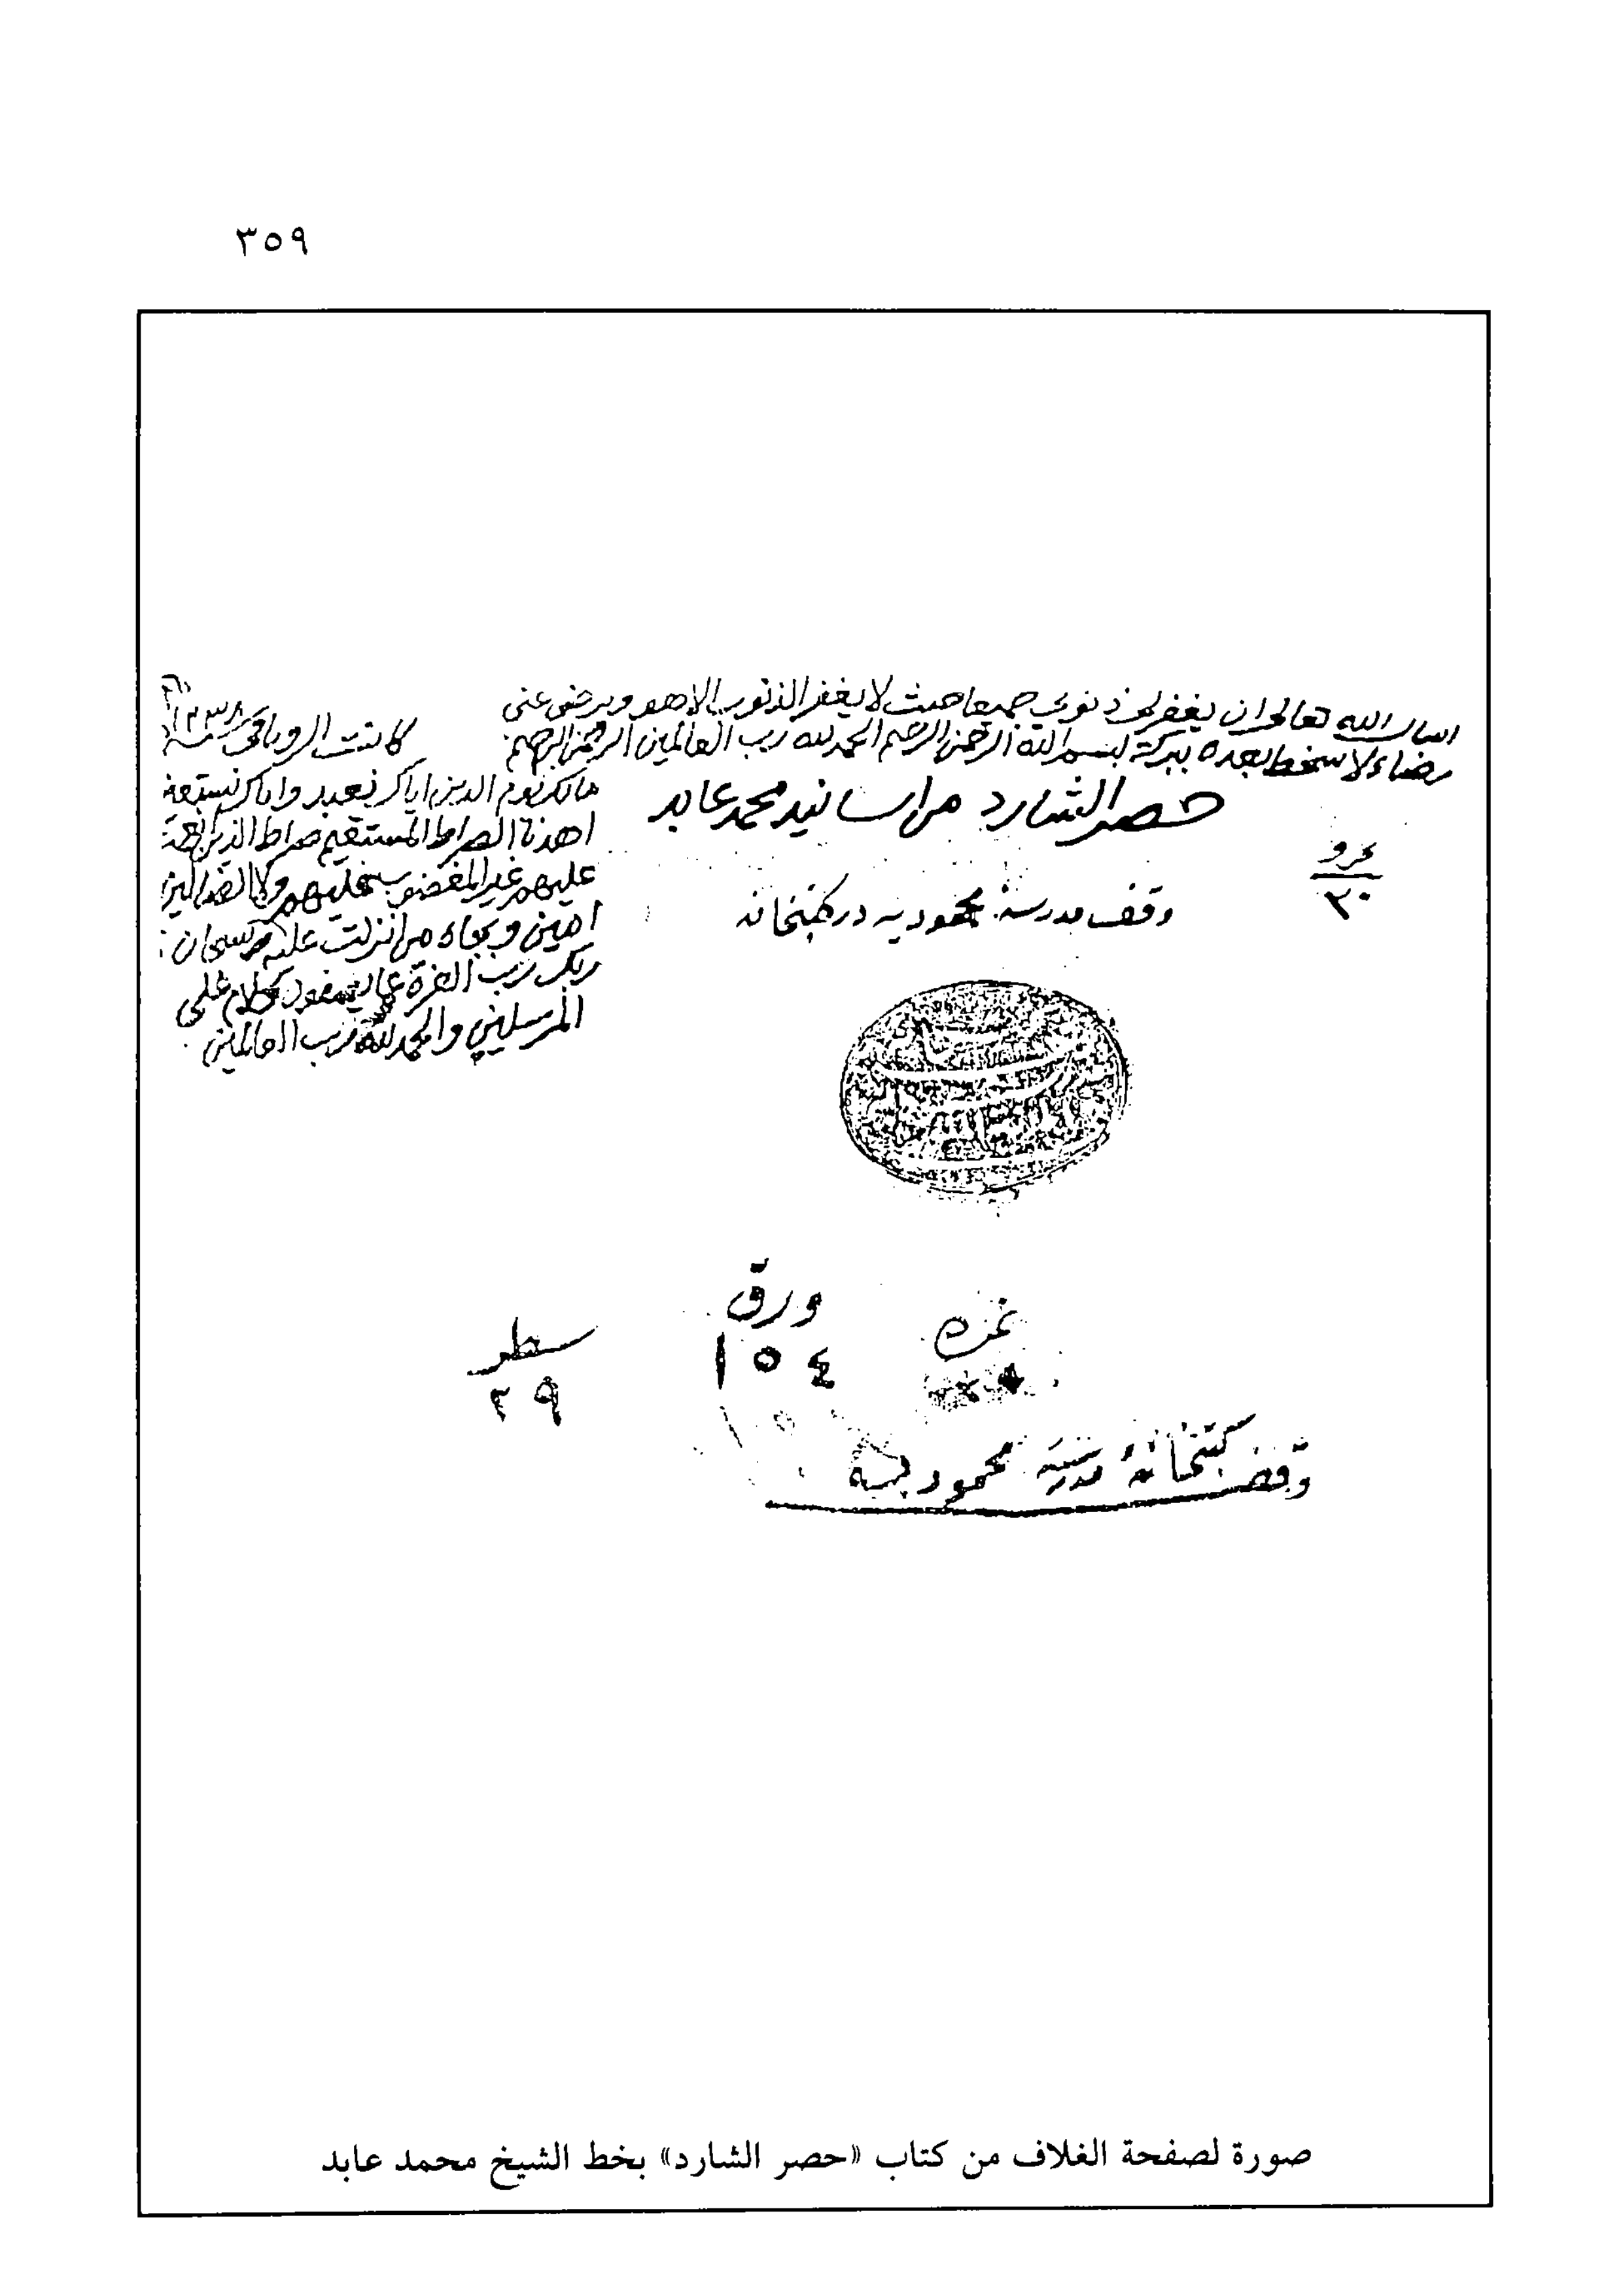 ٣٥٩
اسال الله تعالى ان يغفر لي ذنوبي جميعا حيث لا يغفر الذنوب الا هو ويرضى عني
رضاء لا سخط بعده ببركة بسم الله الرحمن الرحيم الحمد لله رب العالمين الرحمن الرحيم
كانت الوبا في سنة ١٢٣٨
مالك يوم الدين اياك نعبد واياك نستعين
اهدنا الصراط المستقيم صراط الذين انعمت
عليهم غير المغضوب عليهم ولا الضالين
امين وبجاه من انزلت عليه سبحان
ربك رب العزة عما يصفون وسلام على
المرسلين والحمد لله رب العالمين
حصر الشارد من اسانيد محمد عابد
٣٠
وقف مدرسة محموديه در كتبخانه
نمره
ورق
١٥٤
سطر
٢٩
وقف كتبخانهٔ مدرسهٔ محموديه
صورة لصفحة الغلاف من كتاب «حصر الشارد» بخط الشيخ محمد عابد